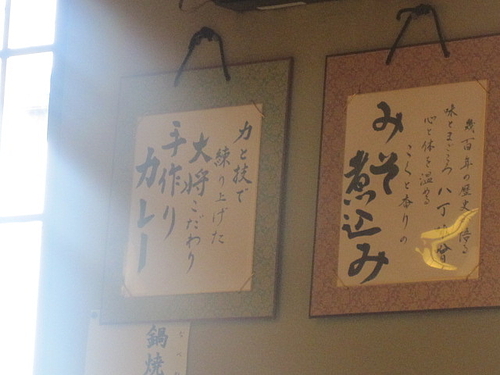 幾百年の歴史
味とまごころ 八丁
心と体を温める
こくと香りの
みそ
煮込み
力と技で
練り上げた
大将こだわり
手作り
カレー
鍋焼